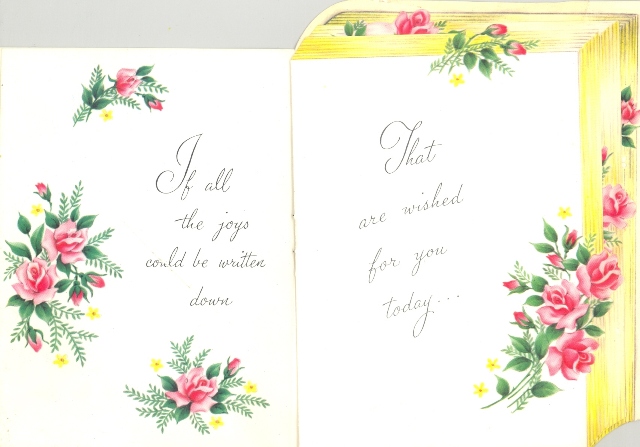 If all
the joys
could be written
down
That
are wished
for you
today...